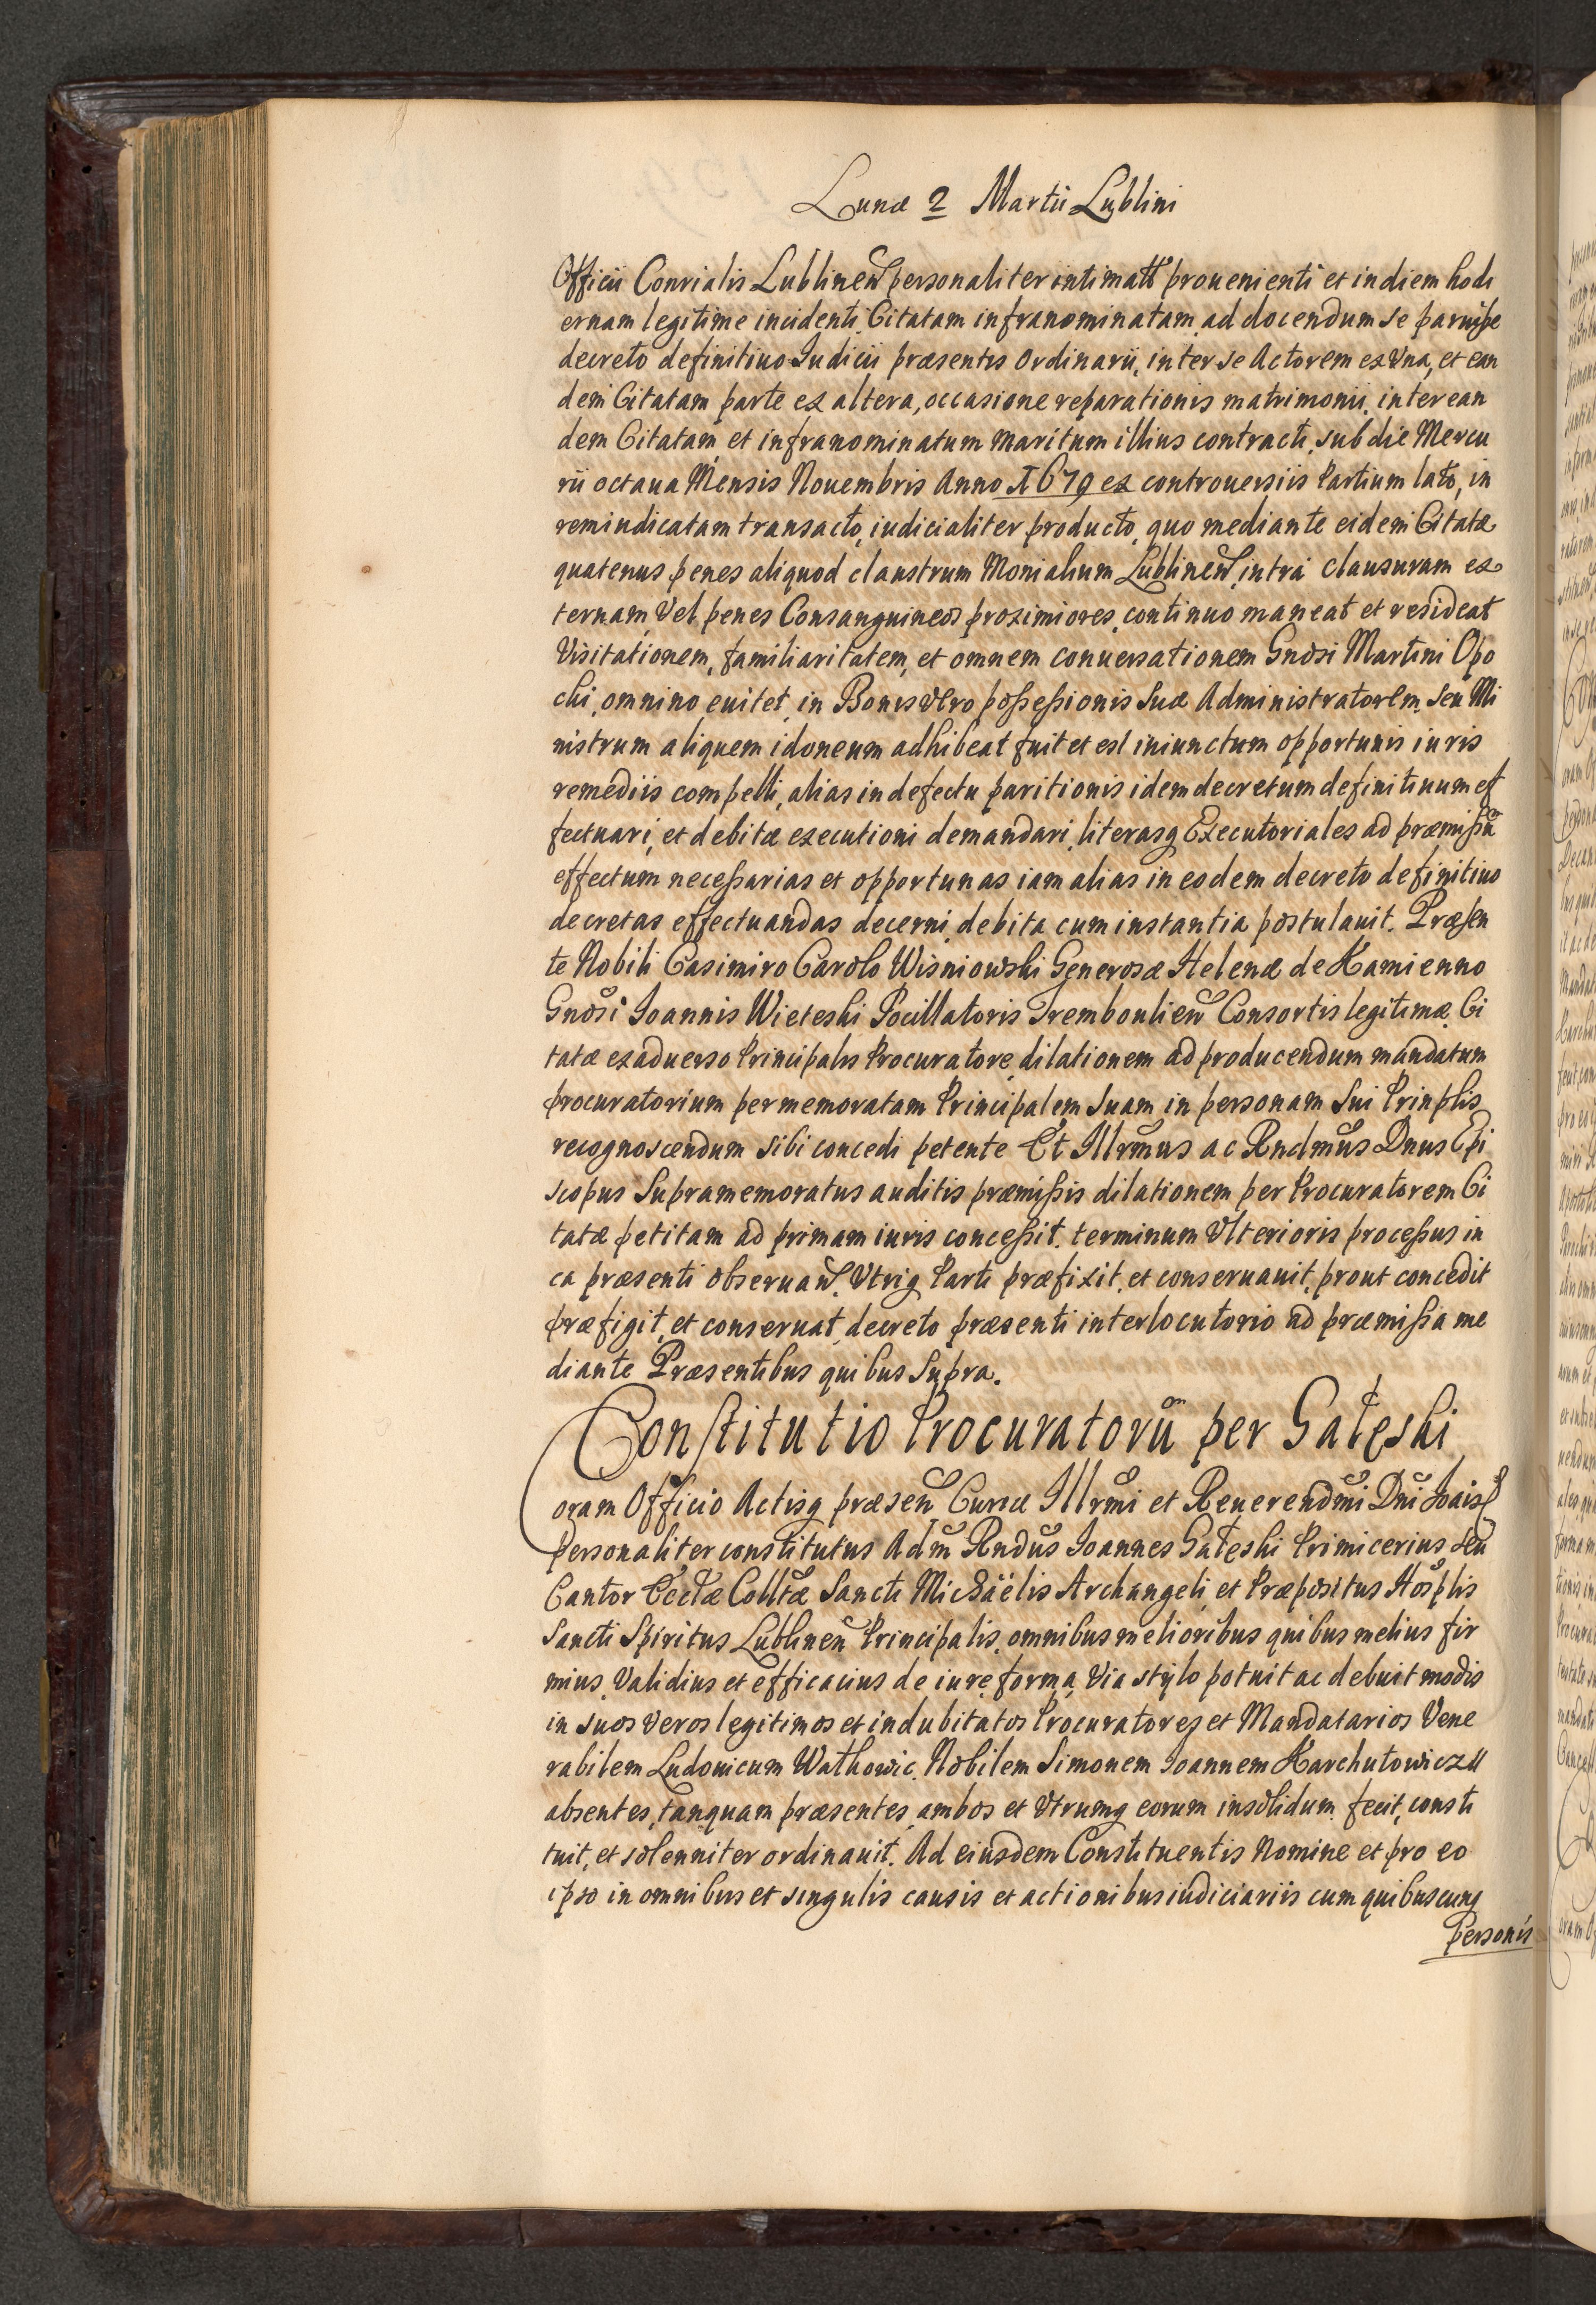 Lunæ 2 Martii Lublini
Officii Consrialis Lublinen personaliter intimatt prouenienti et in diem hodi
ernam legitime incidenti Citatam infranominatam ad docendum se paruiße
decreto definitiuo Iudicii præsentis Ordinarii, inter se Actorem ex Vna, et ean
dem Citatam parte ex altera, occasione reparationis matrimonii inter ean
dem Citatam et infranominatum maritum illius contracti, sub die Mercu
rii octaua Mensis Nouembris Anno 1679 ex controuersiis Partium lato, in
rem iudicatam transacto, iudicialiter producto, quo mediante eidem Citatæ
quatenus penes aliquod claustrum Monialium Lublinen intra clausuram ex
ternam Vel penes Consanguineos proximiores continuo maneat et resideat
Visitationem, familiaritatem, et omnem conuersationem Gnosi Martini Opo
cki omnino euitet, in Bonis Vero poßeßionis Suæ Administratorem seu Mi
nistrum aliquem idoneum adhibeat fuit et est iniunctum opportunis iuris
remediis compelli, alias in defectu paritionis idem decretum definitiuum ef
fectuari, et debitæ executioni demandari, literasq Executoriales ad præmißũ
effectum neceßarias et opportunas iam alias in eodem decreto definitiuo
decretas effectuandas decerni debita cum instantia postulauit. Præsen
te Nobili Casimiro Carolo Wisniowski Generosæ Helenæ de Kamienno
Gnosi Ioannis Wieteski Pocillatoris Trembowlien Consortis legitimæ Ci
tatæ ex aduerso Principalis Procuratore dilationem ad producendum mandatum
procuratorium per memoratam Principalem Suam in personam Sui Prinplis
recognoscendum sibi concedi petente Et Illrmus ac Rndmus Dnus Epi
scopus Supramemoratus auditis præmißis dilationem per Procuratorem Ci
tatæ petitam ad primam iuris conceßit. terminum Vlterioris proceßus in
ca præsenti obseruan. Vtriq Parti præfixit, et conseruauit, prout concedit
præfigit, et conseruat, decreto præsenti interlocutorio ad præmißa me
diante Præsentibus quibus Supra.
Constitutio Procuratorũ per Gateski
Coram Officio Actisq præsen Curiæ Illrmi et Reuerendmi Dni Loci
personaliter constitutus Adm Rndus Ioannes Gateski Primicerius seu
Cantor Ecclæ Colltæ Sancti Michäelis Archangeli et Præpositus Hosplis
Sancti Spiritus Lublinen Principalis, omnibus melioribus quibus melius fir
mius, Validius et efficacius de iure forma Via stylo potuit ac debuit modis
in suos Veros legitimos et indubitatos Procuratores et Mandatarios Vene
rabilem Ludouicum Watkowic, Nobilem Simonem Ioannem Karchutowicz
absentes, tanquam præsentes ambos et Vtrumq eorum insolidum fecit, consti
tuit, et solenniter ordinauit. Ad eiusdem Constituentis Nomine et pro eo
ipso in omnibus et singulis causis et actionibus iudiciariis cum quibuscunq
personis